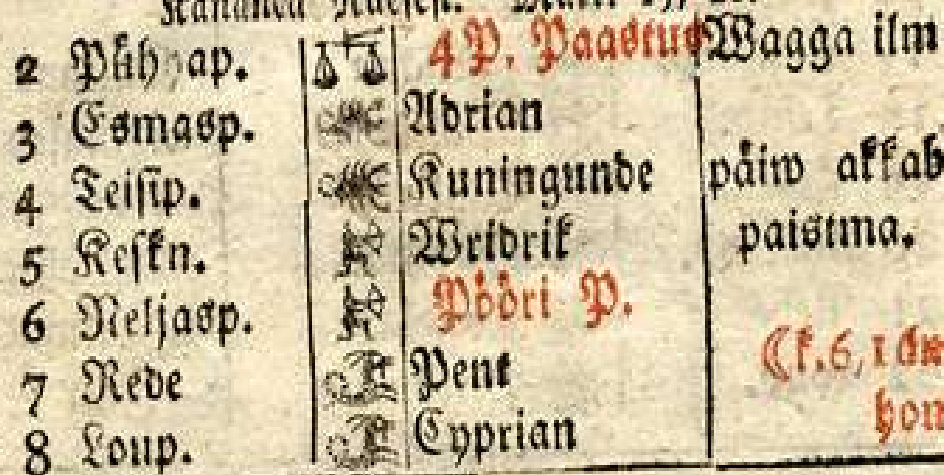 2 Pühhap. 4 P. Paastus Wagga ilm
3 Esmasp. Adrian
4 Teisip. Kuningunde päiw akkab
5 Keskn. Wridrik paistma.
6 Neljasp. Pööri P.
7 Rede Pent (k. 6, 1
8 Loup. Cyprian hom